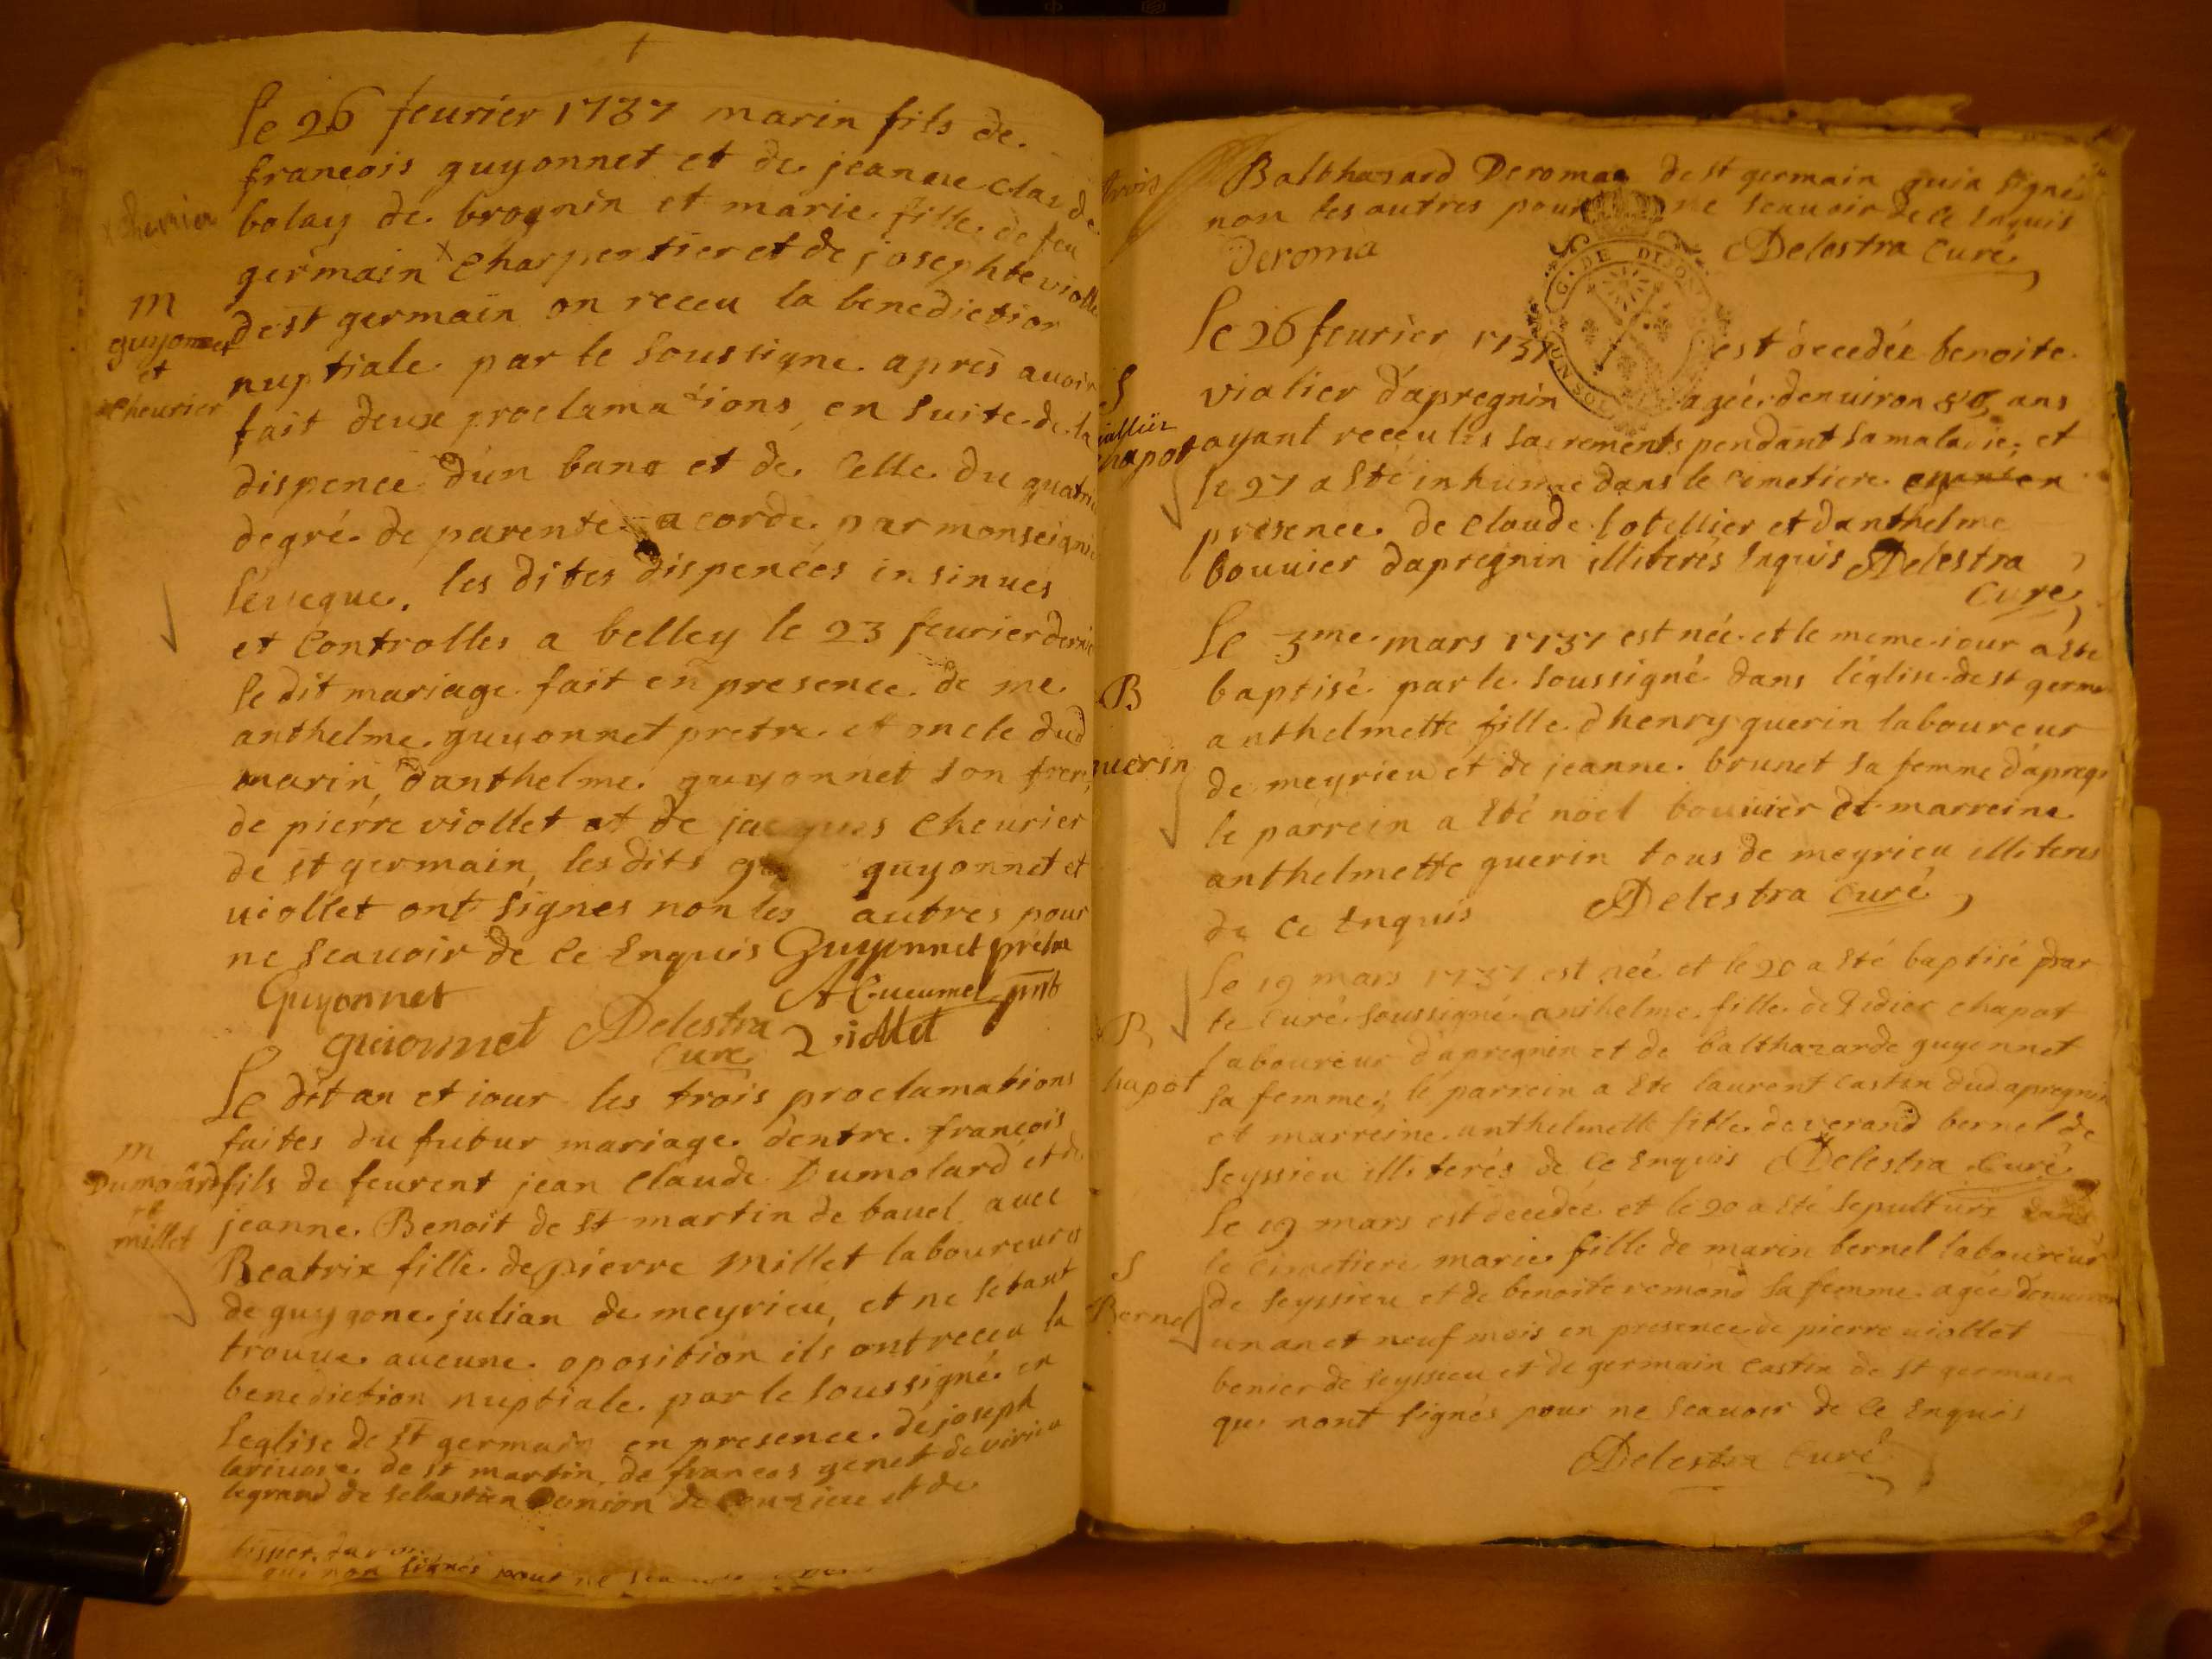 le 26 feurier 1737 marin fils de
francois guyonnet et de jeanne claude
bolay de brognin et marie fille de feu
x chevrier
germain x charpentier et de josephte violle
m
guyonnet
et
cheurier
de st germain on receu la benediction
nuptiale par le soussigne apres auoir
fait deux proclamations en suite de la
dispence d'un banc et de celle du quatrie
degré de parente acorde par monseigne
l'eveque, les dites dispences insinues
et controlles a belley le 23 feurier dernie
le dit mariage fait en presence de me
anthelme guyonnet pretre et oncle dud
marin, d'anthelme guyonnet son frere,
de pierre viollet et de jacques cheurier
de st germain, les dits guyonnet et
uiollet ont signes non les autres pour
ne scauoir de ce enquis Guyonnet pretre
Guyonnet
guionnet Delestra viollet
curé
le dit an et iour les trois proclamations
faites du futur mariage dentre francois
m
Dumolard
et
millet
fils de feurent jean claude Dumolard et de
jeanne Benoit de st martin de bauel auec
Beatrix fille de pierre millet laboureur et
de guygone julian de meyrieu, et ne setant
trouue aucune oposition ils ont receu la
benediction nuptiale par le soussigné en
leglise de st germain en presence de joseph
de st martin, de francois genet de virieu
legrand de sebastien de et de
qui non signés pour ne
Balthazard Deroma de st germain qui a signé
non les autres pour ne scauoir de ce enquis
deroma Delestra curé
G. DE DIJON
UN SOL
le 26 feurier 1737 est decedée benoite
S
uiallier
chapot
vialier d'apregnin agée denuiron ans
ayant receu les sacrements pendant sa maladie, et
le 27 a eté inhumée dans le cimetiere
presence de claude lotellier et danthelme
bouuier dapregnin illiterés enquis Delestra
curé
le 3me mars 1737 est née et le meme iour a ete
B
guerin
baptisé par le soussigné dans l'église de st germa
anthelmette fille dhenry guerin laboureur
de meyrieu et de jeanne brunet sa femme d'apreg
le parrein a eté noel bouuier et marreine
anthelmette guerin tous de meyrieu illiteres
de ce enquis Delestra curé
le 19 mars 1737 est née et le 20 a eté baptisé par
B
chapot
le curé soussigné anthelme fille de didier chapot
laboureur d'apregnin et de balthazarde guyonnet
sa femme, le parrein a ete laurent castin dud apregnin
et marreine anthelmette fille de verand bernel de
seyssieu illiterés de ce enquis Delestra curé
le 19 mars est decedée et le 20 a eté sepulturé dans
S
Bernel
le cimetiere marie fille de marin bernel laboureur
de seyssieu et de benoite remond sa femme agée denuiron
un an et neuf mois en presence de pierre uiollet
benier de seyssieu et de germain castin de st germain
qui nont signés pour ne scauoir de ce enquis
Delestra curé